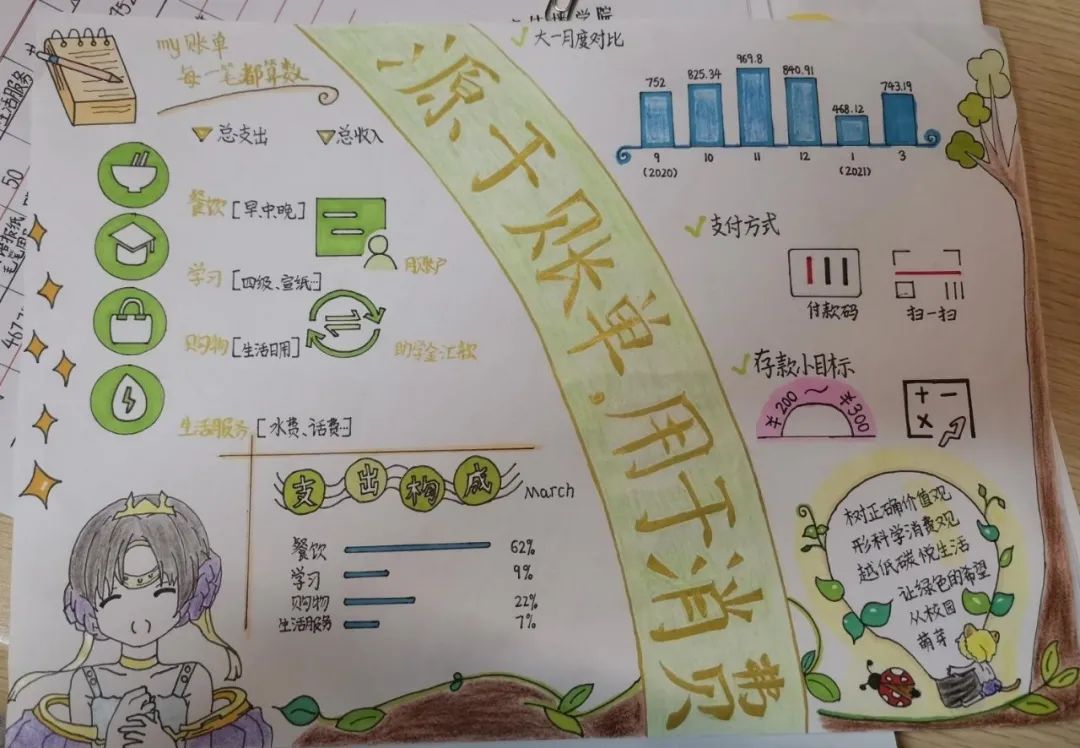 my账单
每一笔都算数
总支出
总收入
餐饮[早.中.晚]
用账户
学习[四级、宣纸..]
购物[生活日用]
助学金汇款
生活服务[水费、话费..]
支出构成 March
餐饮 62%
学习 9%
购物 22%
生活服务 7%
源于账单,用于消费
大一月度对比
752 825.34 969.8 840.91 468.12 743.19
9 10 11 12 1 3
(2020) (2021)
支付方式
付款码 扫一扫
存款小目标
¥200~¥300
+ −
×
树正确价值观
形科学消费观
越低碳悦生活
让绿色的希望
从校园
萌芽
752
生活服务
50
467